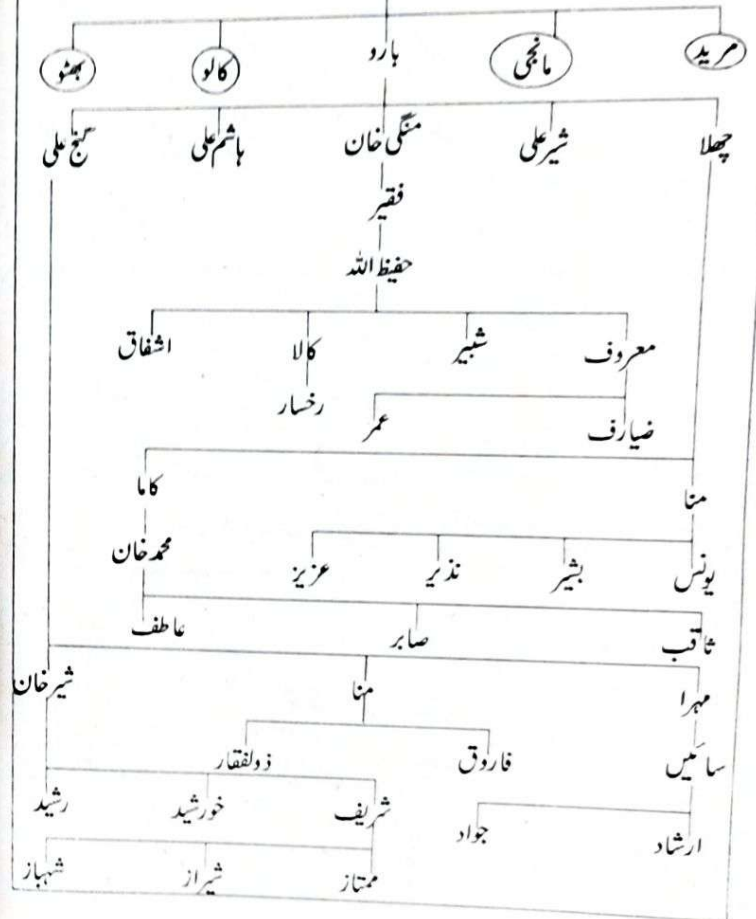 مرید مانجی بارو کالو بھٹو
چھلا شیر علی منگی خان ہاشم علی گنج علی
فقیر
حفیظ اللہ
معروف شبیر کالا اشفاق
ضیارف عمر رخسار
منا کاما
یونس بشیر نذیر عزیز محمد خان
ثاقب صابر عاطف
مہرا منا شیر خان
سائیں فاروق ذولفقار
ارشاد جواد شریف خورشید رشید
ممتاز شیراز شہباز